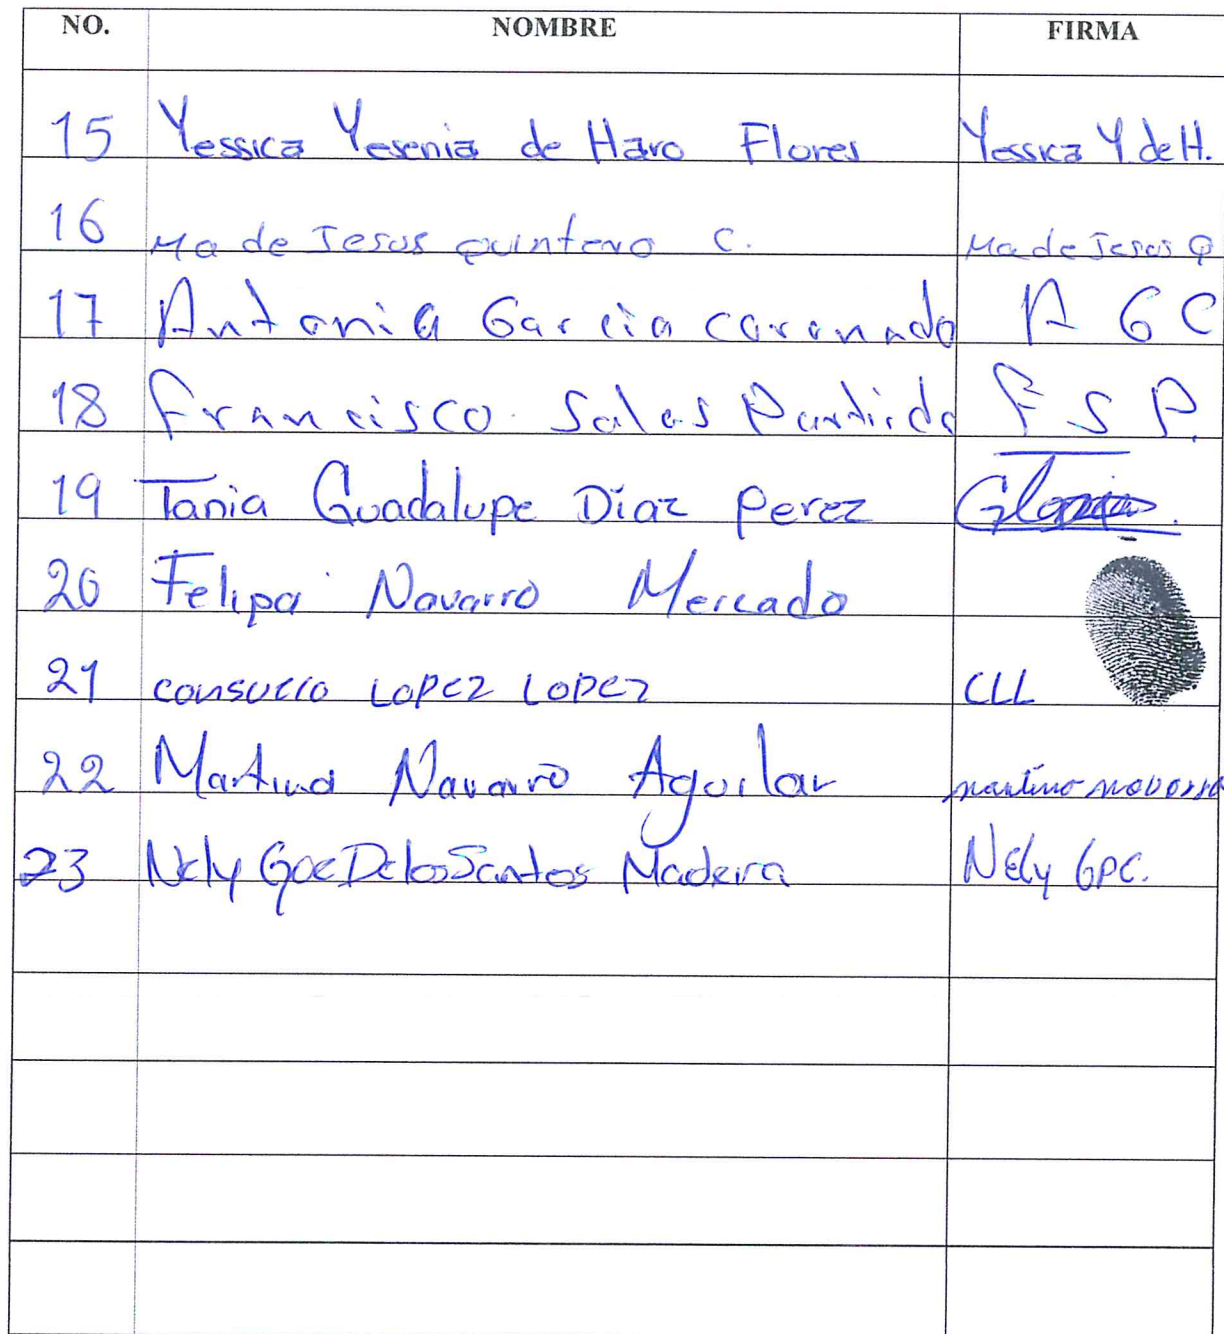 NO. NOMBRE FIRMA
15 Yessica Yesenia de Haro Flores Yessica Y de H.
16 Ma de Jesus quintero C. Ma de Jesus Q
17 Antonia Garcia coronado A G C
18 Francisco Salas Partida F S P.
19 Tania Guadalupe Díaz Perez
20 Felipa Navarro Mercado
21 consuelo Lopez Lopez CLL
22 Martina Navarro Aguilar martina navarro
23 Nely Gpe De los Santos Madera Nely Gpe.